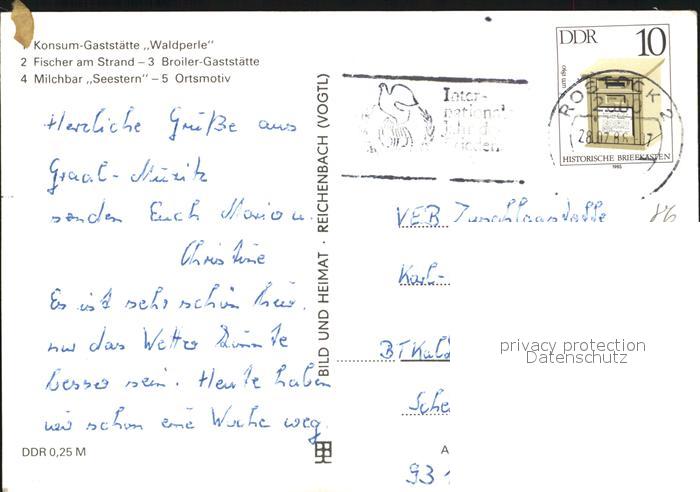 1 Konsum-Gaststätte „Waldperle"
2 Fischer am Strand – 3 Broiler-Gaststätte
4 Milchbar „Seestern" – 5 Ortsmotiv
Herzliche Grüße aus
Graal-Müritz
senden Euch Mario u.
Christine
Es ist sehr schön hier,
nur das Wetter könnte
besser sein. Heute haben
wir schon eine Woche weg.
DDR 0,25 M
BILD UND HEIMAT · REICHENBACH (VOGTL)
Inter-
nationales
DDR 10
um 1890
HISTORISCHE BRIEFKASTEN
1985
ROSTOCK 2
2500
28.07.86
86
VEB
Karl-
BT Kald
Sche
A
93
privacy protection
Datenschutz